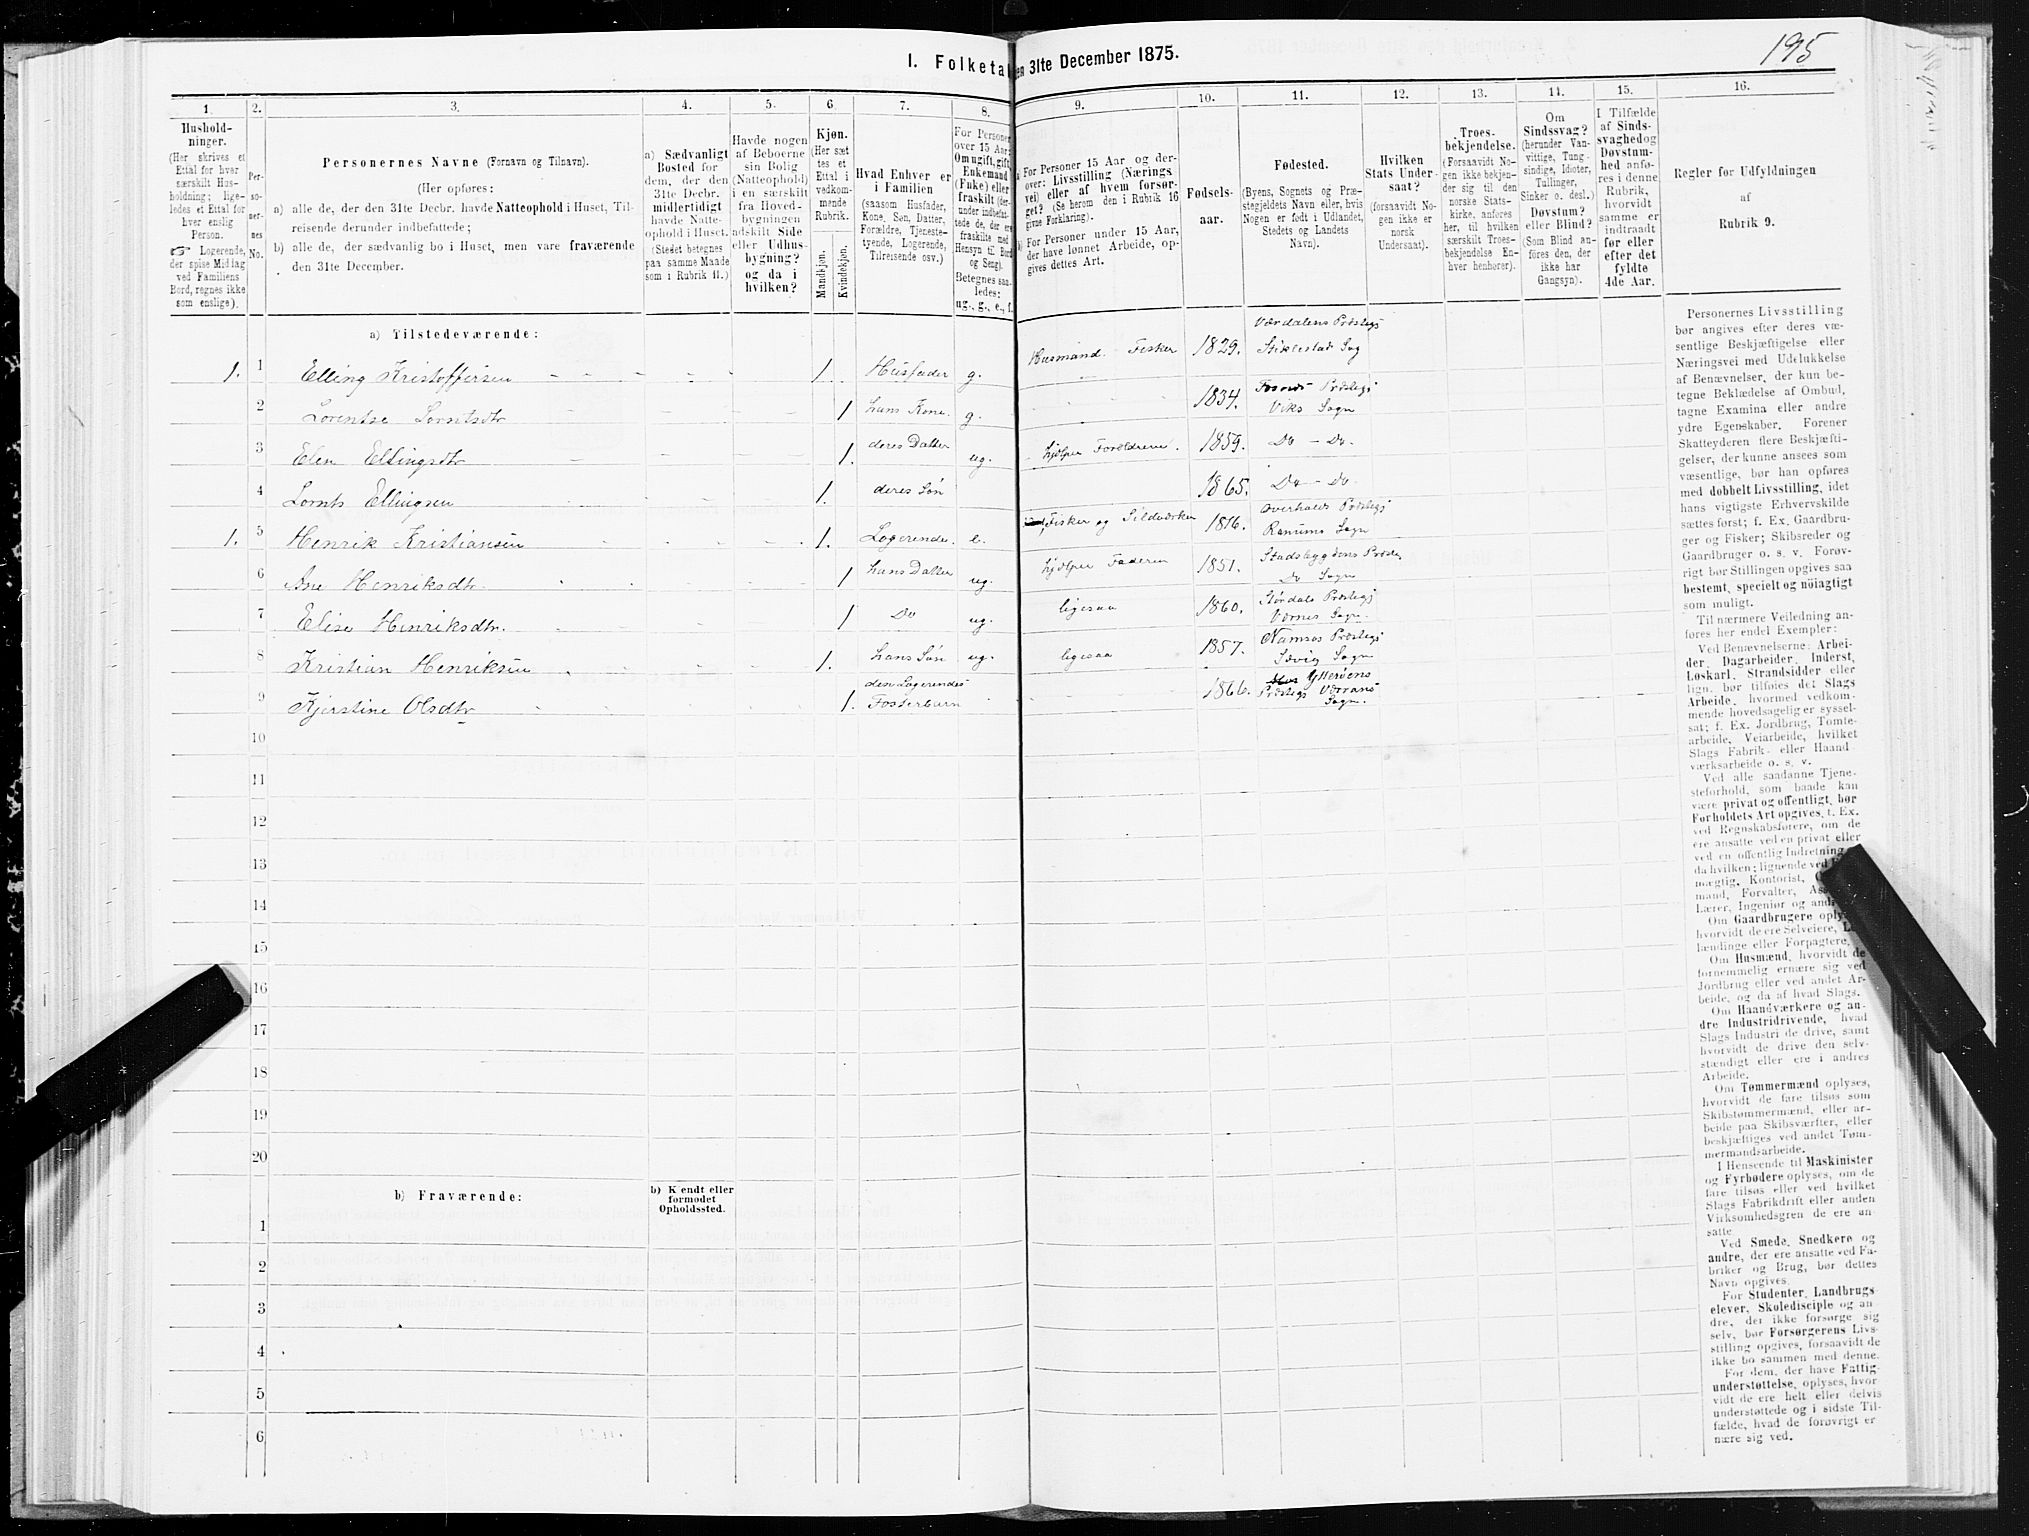 195
I. Folketal den 31te December 1875.
1. 2. 3. 4. 5. 6. 7. 8. 9. 10. 11. 12. 13. 14. 15. 16.
Hushold-
ninger.
(Her skrives et
Ettal for hver
særskilt Hus-
holdning; lige-
ledes et Ettal for
hver enslig
Person.
☞ Logerende,
der spise Middag
ved Familiens
Bord, regnes ikke
som enslige).
Per-
so-
ner-
nes
No.
Personernes Navne (Fornavn og Tilnavn).
(Her opføres:
a) alle de, der den 31te Decbr. havde Natteophold i Huset, Til-
reisende derunder indbefattede;
b) alle de, der sædvanlig bo i Huset, men vare fraværende
den 31te December.
a) Sædvanligt
Bosted for
dem, der den
31te Decbr.
midlertidigt
havde Natte-
ophold i Huset.
(Stedet betegnes
paa samme Maade
som i Rubrik 11.)
Havde nogen
af Beboerne
sin Bolig
(Natteophold)
i en særskilt
fra Hoved-
bygningen
adskilt Side
eller Udhus-
bygning?
og da i
hvilken?
Kjøn.
(Her sæt
tes et
Ettal i
vedkom-
mende
Rubrik.
Mandkjøn.
Kvindekjøn.
Hvad Enhver er
i Familien
(saasom Husfader,
Kone, Søn, Datter,
Forældre, Tjeneste-
tyende, Logerende,
Tilreisende osv.)
For Personer
over 15 Aar:
Om ugift, gift,
Enkemand
(Fuke) eller
fraskilt (der-
under indbefat-
tede de, der ere
fraskilte med
Hensyn til Bord
og Seng).
Betegnes saa-
ledes:
ug., g., e., f.
a) For Personer 15 Aar og der-
over: Livsstilling (Nærings
vei) eller af hvem forsør-
get? (Se herom den i Rubrik 16
givne Forklaring).
b) For Personer under 15 Aar,
der have lønnet Arbeide, op-
gives dettes Art.
Fødsels-
aar.
Fødested.
(Byens, Sognets og Præ-
stegjeldets Navn eller, hvis
Nogen er født i Udlandet,
Stedets og Landets
Navn).
Hvilken
Stats Under-
saat?
(forsaavidt No-
gen ikke er
norsk
Undersaat).
Troes-
bekjendelse.
(Forsaavidt No-
gen ikke bekjen-
der sig til den
norske Stats-
kirke, anføres
her, til hvilken
særskilt Troes-
bekjendelse En-
hver henhører).
Om
Sindssvag?
(herunder Van-
vittige, Tung-
sindige, Idioter,
Tullinger,
Sinker o. desl.)
Døvstum?
eller Blind?
(Som Blind an-
føres den, der
ikke har
Gangsyn).
I Tilfælde
af Sinds-
svaghed og
Døvstum-
hed anfø-
res i denne
Rubrik,
hvorvidt
samme er
indtraadt
før eller
efter det
fyldte
4de Aar.
Regler for Udfyldningen
af
Rubrik 9.
a) Tilstedeværende:
1. 1 Elling Kristoffersen 1. Husfader g. Husmand. Fisker 1829. Værdalens Præstegj Stiklestad Sog
2 Lorentse Lorntsdtr 1 hans Kone. g. 1834. Fosnes Præstegj Viks Sogn
3 Elen Ellingsdtr 1. deres Datter ug. hjælper Forældrene. 1859. Do - Do.
4 Lornts Ellingsen 1. deres Søn 1865. Do - Do.
1. 5 Henrik Kristiansen 1. Logerende. e. Fisker og 1816. Overhalds Præstegj Ranums Sogn
6 Ane Henriksdtr. 1 hans Datter ug. hjælper Faderen 1851. Stadsbygdens Præste Do Sogn
7 Elise Henriksdtr. 1 Do ug. ligesaa 1860. Størdals Præstegj Værnes Sogn.
8 Kristian Henriksen 1. hans Søn ug. ligesaa 1857. Namsos Præstegj Sævig Sogn
9 Kjerstine Olsdtr 1. den Logerendes Fosterbarn 1866. Ytterøens Præstegj Værrans Sogn.
10
11
12
13
14
15
16
17
18
19
20
b) Fraværende:
b) Kjendt eller
formodet
Opholdssted.
1
2
3
4
5
6
Personernes Livsstilling
bør angives efter deres væ-
sentlige Beskjæftigelse eller
Næringsvei med Udelukkelse
af Benævnelser, der kun be-
tegne Beklædelse af Ombud,
tagne Examina eller andre
ydre Egenskaber. Forener
Skatteyderen flere Beskjæfti-
gelser, der kunne ansees som
væsentlige, bør han opføres
med dobbelt Livsstilling, idet
hans vigtigste Erhvervskilde
sættes først; f. Ex. Gaardbru-
ger og Fisker; Skibsreder og
Gaardbruger o. s. v. Forøv-
rigt bør Stillingen opgives saa
bestemt, specielt og nøiagtigt
som muligt.
Til nærmere Veiledning an-
føres her endel Exempler:
Ved Benævnelserne: Arbei-
der, Dagarbeider, Inderst,
Løskarl, Strandsidder eller
lign. bør tilføies det Slags
Arbeide, hvormed vedkom-
mende hovedsagelig er syssel-
sat; f. Ex. Jordbrug, Tomte-
arbeide, Veiarbeide, hvilket
Slags Fabrik- eller Haand-
værksarbeide o. s. v.
Ved alle saadanne Tjene-
steforhold, som baade kan
være privat og offentligt, bør
Forholdets Art opgives, t. Ex.
ved Regnskabsførere, om de
ere ansatte ved en privat eller
ved en offentlig Indretning og
da hvilken; lignende ved
mægtig, Kontorist,
mand, Forvalter,
Lærer, Ingeniør og
Om Gaardbrugere oplyses,
hvorvidt de ere Selveiere,
lændinge eller Forpagtere.
Om Husmænd, hvorvidt de
fornemmelig ernære sig ved
Jordbrug eller ved andet Ar-
beide, og da af hvad Slags.
Om Haandværkere og an-
dre Industridrivende, hvad
Slags Industri de drive, samt
hvorvidt de drive den selv-
stændigt eller ere i andres
Arbeide.
Om Tømmermænd oplyses,
hvorvidt de fare tilsøs som
Skibstømmermænd, eller ar-
beide paa Skibsværfter, eller
beskjæftiges ved andet Tøm-
mermandsarbeide.
I Henseende til Maskinister
og Fyrbødere oplyses, om de
fare tilsøs eller ved hvilket
Slags Fabrikdrift eller anden
Virksomhedsgren de ere an-
satte.
Ved Smede, Snedkere og
andre, der ere ansatte ved Fa-
briker og Brug, bør dettes
Navn opgives.
For Studenter, Landbrugs-
elever, Skoledisciple og an-
dre, der ikke forsørge sig
selv, bør Forsørgerens Livs-
stilling opgives, forsaavidt de
ikke bo sammen med denne.
For dem, der have Fattig-
understøttelse, oplyses, hvor-
vidt de ere helt eller delvis
understøttede og i sidste Til-
fælde, hvad de forøvrigt er
nære sig ved.